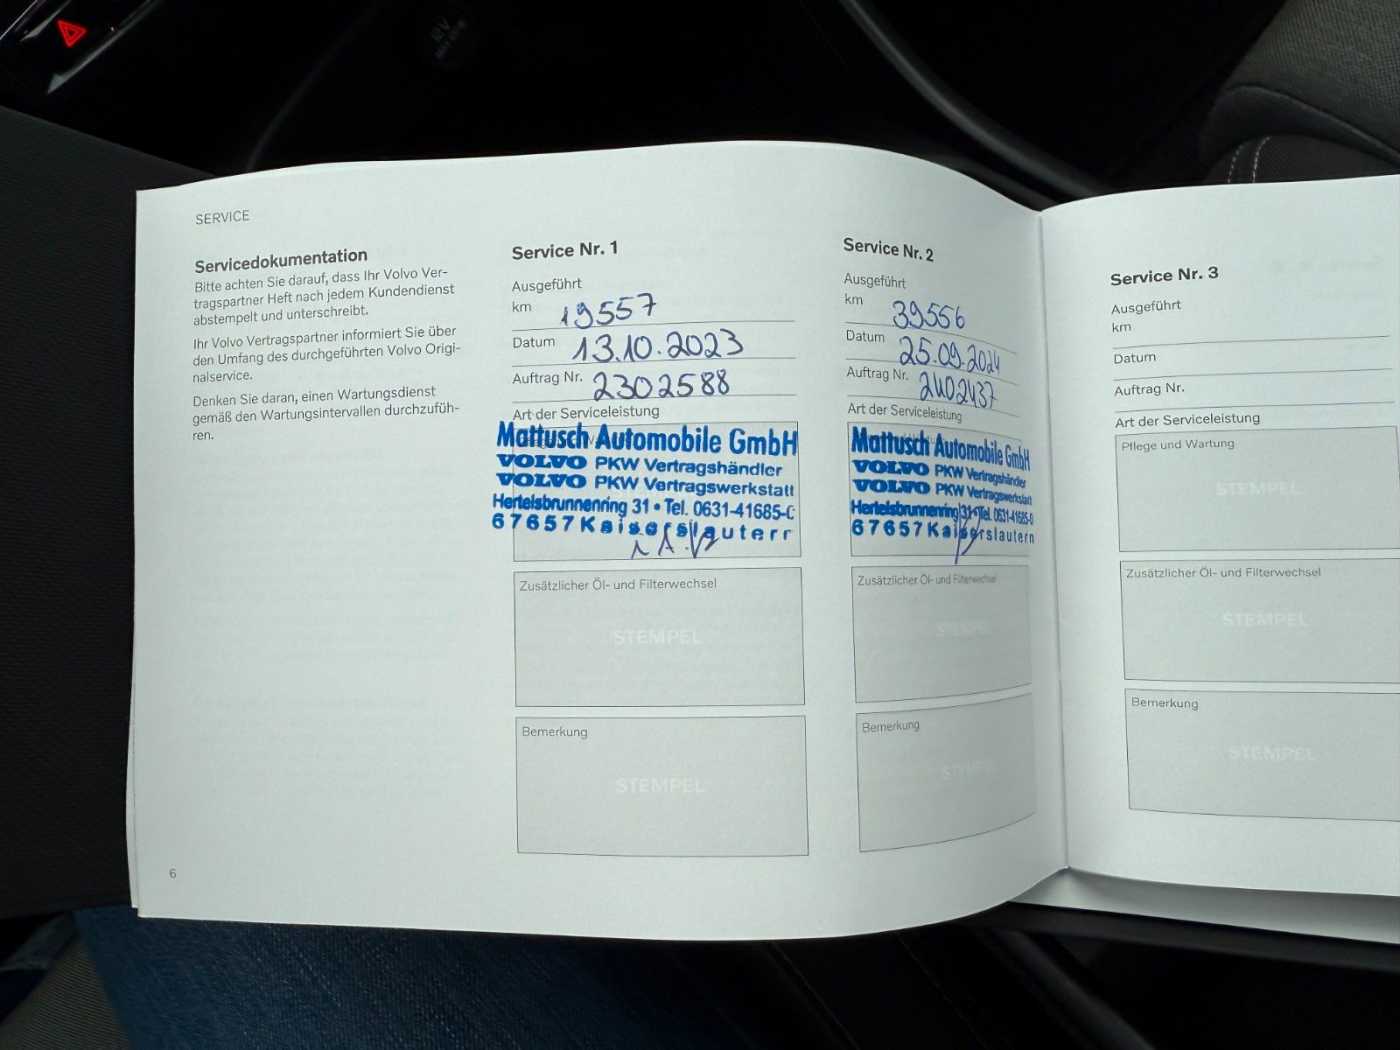 SERVICE
Servicedokumentation
Bitte achten Sie darauf, dass Ihr Volvo Ver-
tragspartner Heft nach jedem Kundendienst
abstempelt und unterschreibt.
Ihr Volvo Vertragspartner informiert Sie über
den Umfang des durchgeführten Volvo Origi-
nalservice.
Denken Sie daran, einen Wartungsdienst
gemäß den Wartungsintervallen durchzufüh-
ren.
6
Service Nr. 1
Ausgeführt
km 19557
Datum 13.10.2023
Auftrag Nr. 2302588
Art der Serviceleistung
Mattusch Automobile GmbH
VOLVO PKW Vertragshändler
VOLVO PKW Vertragswerkstatt
Hertelsbrunnenring 31 • Tel. 0631-41685-0
67657 Kaiserslautern
Zusätzlicher Öl- und Filterwechsel
STEMPEL
Bemerkung
STEMPEL
Service Nr. 2
Ausgeführt
km 39556
Datum 25.09.2024
Auftrag Nr. 2402437
Art der Serviceleistung
Mattusch Automobile GmbH
VOLVO PKW Vertragshändler
VOLVO PKW Vertragswerkstatt
Hertelsbrunnenring 31 • Tel. 0631-41685-0
67657 Kaiserslautern
Zusätzlicher Öl- und Filterwechsel
STEMPEL
Bemerkung
STEMPEL
Service Nr. 3
Ausgeführt
km
Datum
Auftrag Nr.
Art der Serviceleistung
Pflege und Wartung
STEMPEL
Zusätzlicher Öl- und Filterwechsel
STEMPEL
Bemerkung
STEMPEL